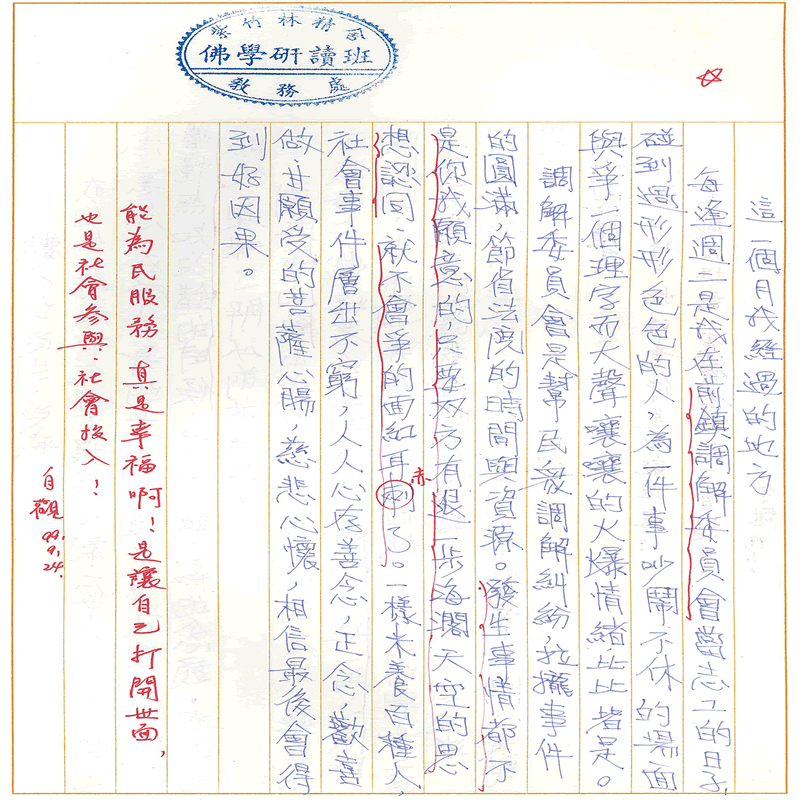 紫竹林精舍
佛學研讀班
教務處
這一個月我經過的地方
每逢週二是我在前鎮調解委員會當志工的日子,
碰到過形形色色的人,為一件事吵鬧不休的場面
與爭一個理字而大聲嚷嚷的火爆情緒,比比皆是。
調解委員會是幫民眾調解糾紛,拉攏事件
的圓滿,節省法院的時間與資源。發生事情都不
是你我願意的,只要雙方有退一步海濶天空的思
想認同,就不會爭的面紅耳刺了。一樣米養百種人,
赤
社會事件層出不窮,人人心存善念,正念,歡喜
做,甘願受的菩薩心腸,慈悲心懷,相信最後會得
到好因果。
能為民服務,真是幸福啊!是讓自己打開世面,
也是社會參與、社會投入!
自觀 99.9.24.